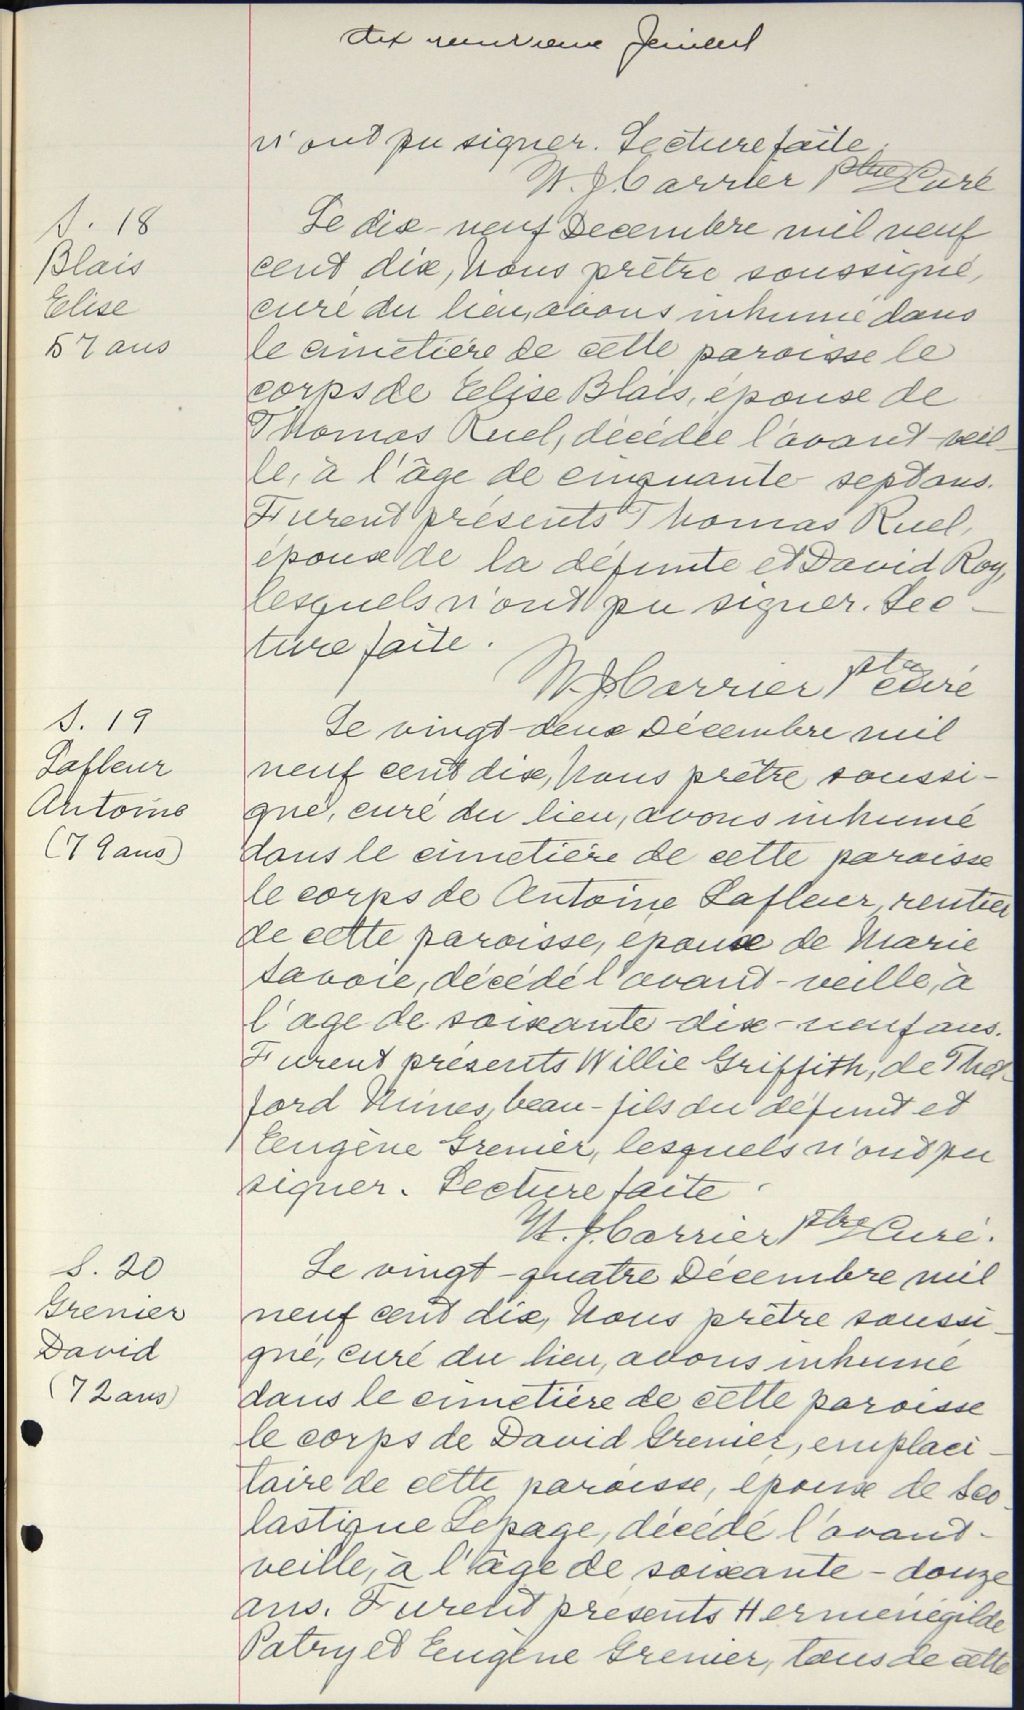 dix neuvieme feuillet
n'ont pu signer. Lecture faite.
W. J. Carrier ptre Curé
S. 18
Blais
Elise
57 ans
Le dix-neuf Decembre mil neuf
cent dix, Nous prêtre soussigné,
curé du lieu, avons inhumé dans
le cimetière de cette paroisse le
corps de Elise Blais, épouse de
Thomas Ruel, décédée l'avant-veil-
le, à l'âge de cinquante-sept ans.
Furent présents Thomas Ruel,
époux de la défunte et David Roy,
lesquels n'ont pu signer. Lec-
ture faite.
W. J. Carrier ptre curé
S. 19
Lafleur
Antoine
(79 ans)
Le vingt-deux Décembre mil
neuf cent dix, Nous prêtre soussi-
gné, curé du lieu, avons inhumé
dans le cimetière de cette paroisse
le corps de Antoine Lafleur, rentier
de cette paroisse, epoux de Marie
Savoie, décédé l'avant-veille, à
l'age de soixante-dix-neuf ans.
Furent présents Willie Griffith, de Thet-
ford Mines, beau-fils du défunt et
Eugène Grenier, lesquels n'ont pu
signer. Lecture faite.
W. J. Carrier ptre Curé.
S. 20
Grenier
David
(72 ans)
Le vingt-quatre Décembre mil
neuf cent dix, Nous prêtre soussi-
gné, curé du lieu, avons inhumé
dans le cimetière de cette paroisse
le corps de David Grenier, emplaci-
taire de cette paroisse, époux de Sco-
lastique Lepage, décédé l'avant-
veille, à l'âge de soixante-douze
ans. Furent présents Herménégilde
Patry et Eugène Grenier, tous de cette